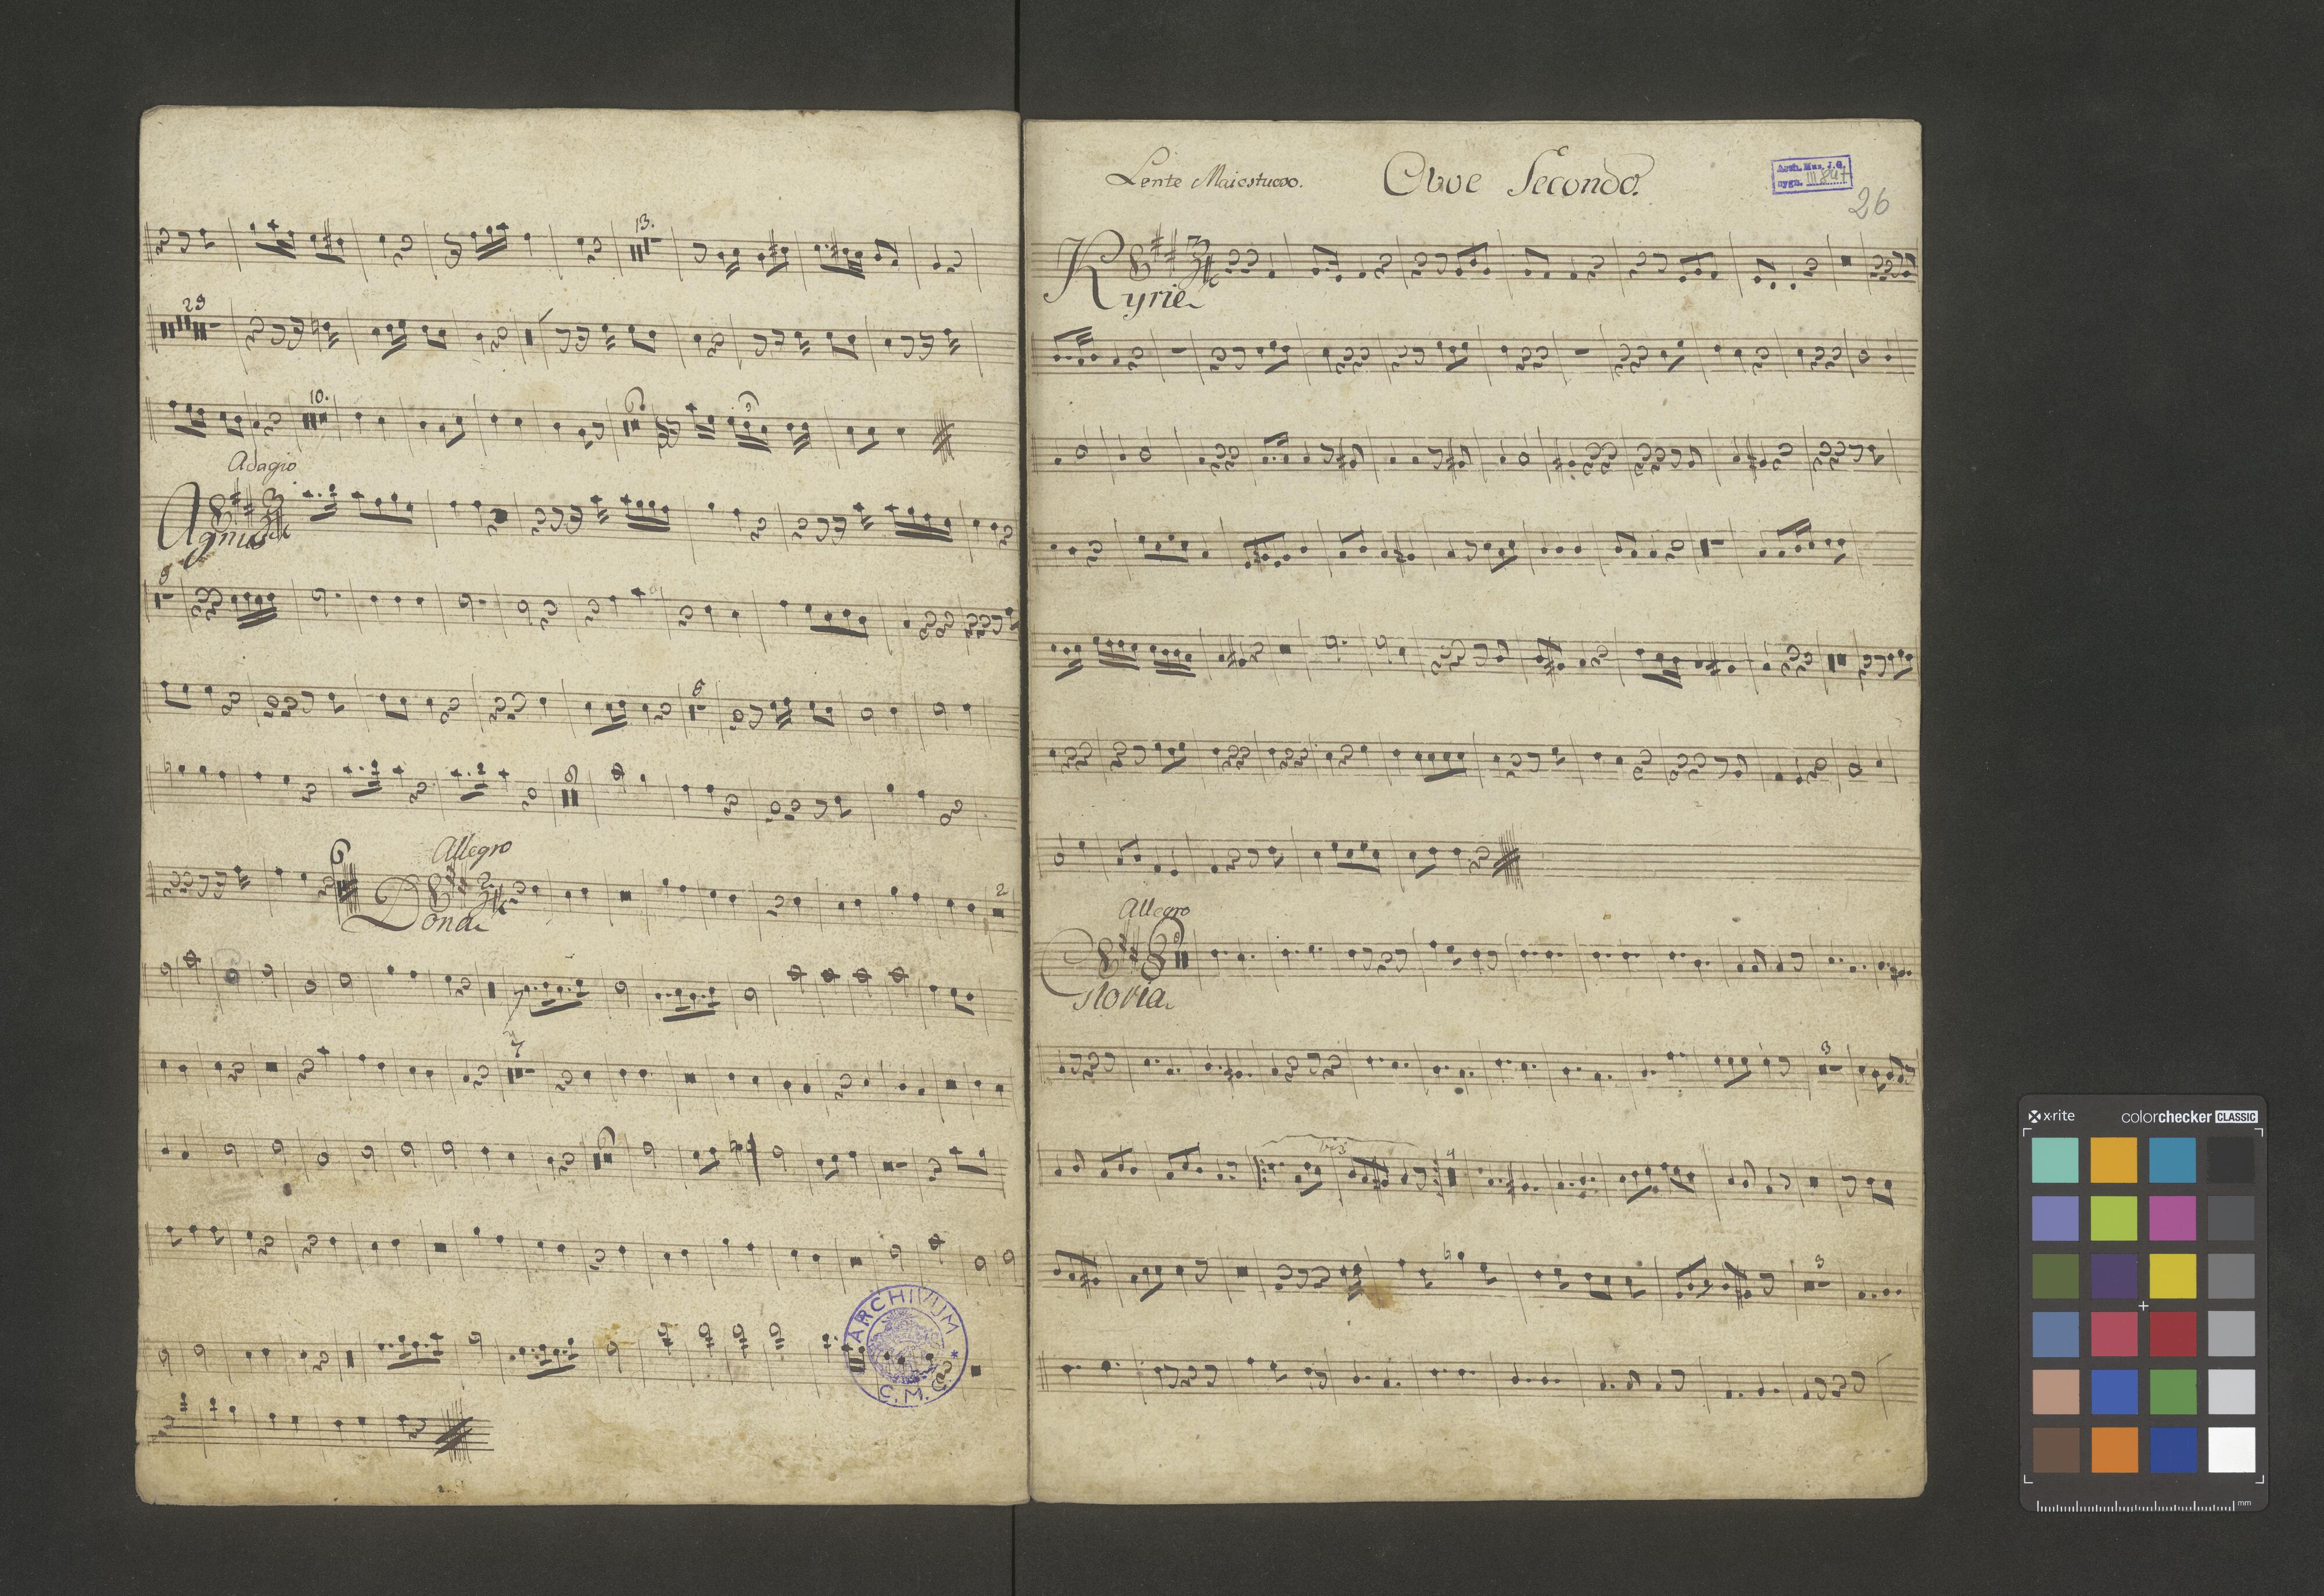 13.
29
10.
Adagio
Agnus
6
Allegro
Dona
2
7
ARCHIVUM
C. M. C.
Lente Maiestuoso. Oboe Secondo.
Arch. Mus. J. G.
sygn. III
26
Kyrie
Allegro
Gloria
3
3
x·rite colorchecker CLASSIC
mm